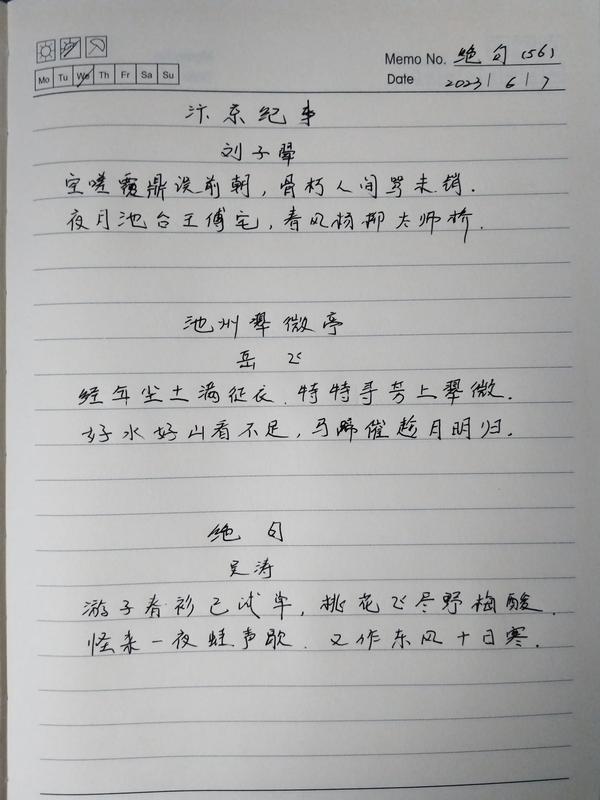 Memo No. 绝句(56)
Mo Tu We Th Fr Sa Su
Date 2023/6/7
汴京纪事
刘子翚
空嗟覆鼎误前朝，骨朽人间骂未销.
夜月池台王傅宅，春风杨柳太师桥.
池州翠微亭
岳飞
经年尘土满征衣.特特寻芳上翠微.
好水好山看不足，马蹄催趁月明归.
绝句
吴涛
游子春衫已试单，桃花飞尽野梅酸.
怪来一夜蛙声歇.又作东风十日寒.